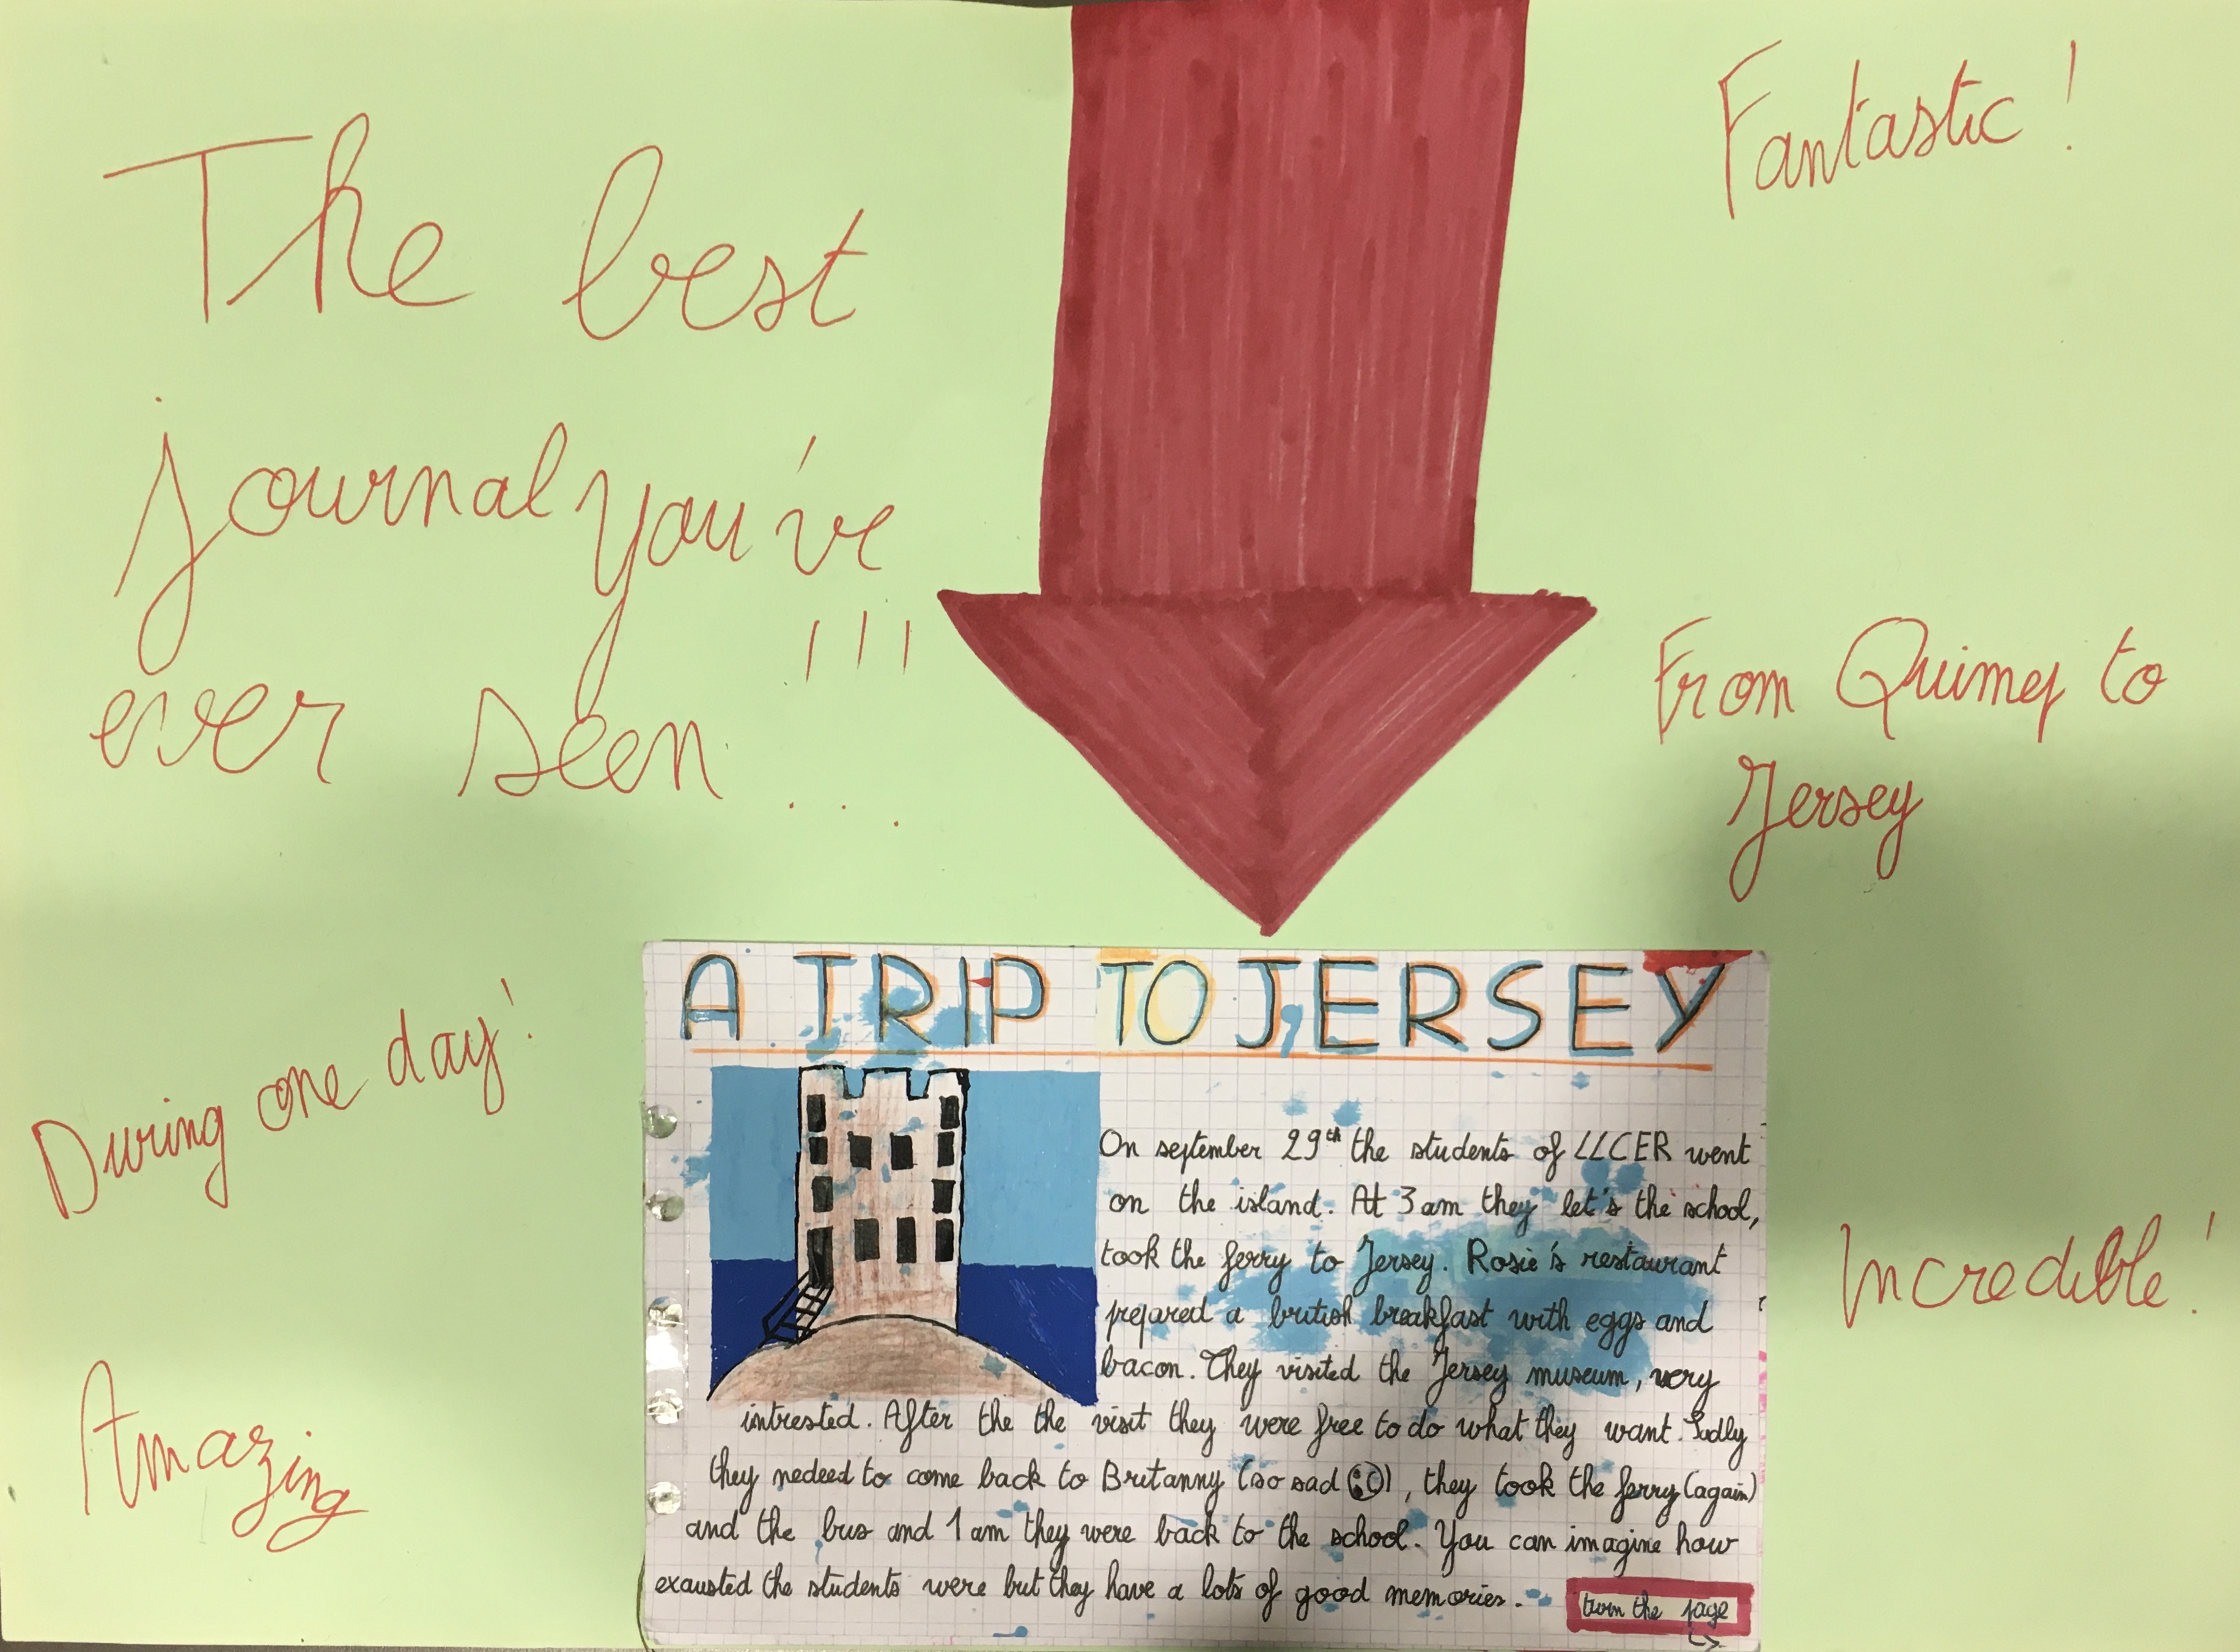 The best
journal you've
ever seen !!!
Fantastic !
From Quimper to
Jersey
During one day !
Amazing
Incredible !
A TRIP TO JERSEY
On september 29th the students of LLCER went
on the island. At 3 am they let's the school,
took the ferry to Jersey. Rosie's restaurant
prepared a british breakfast with eggs and
bacon. They visited the Jersey museum, very
intrested. After the the visit they were free to do what they want. Sadly
they nedeed to come back to Britanny (so sad :C), they took the ferry (again)
and the bus and 1 am they were back to the school. You can imagine how
exausted the students were but they have a lots of good memories.
turn the page